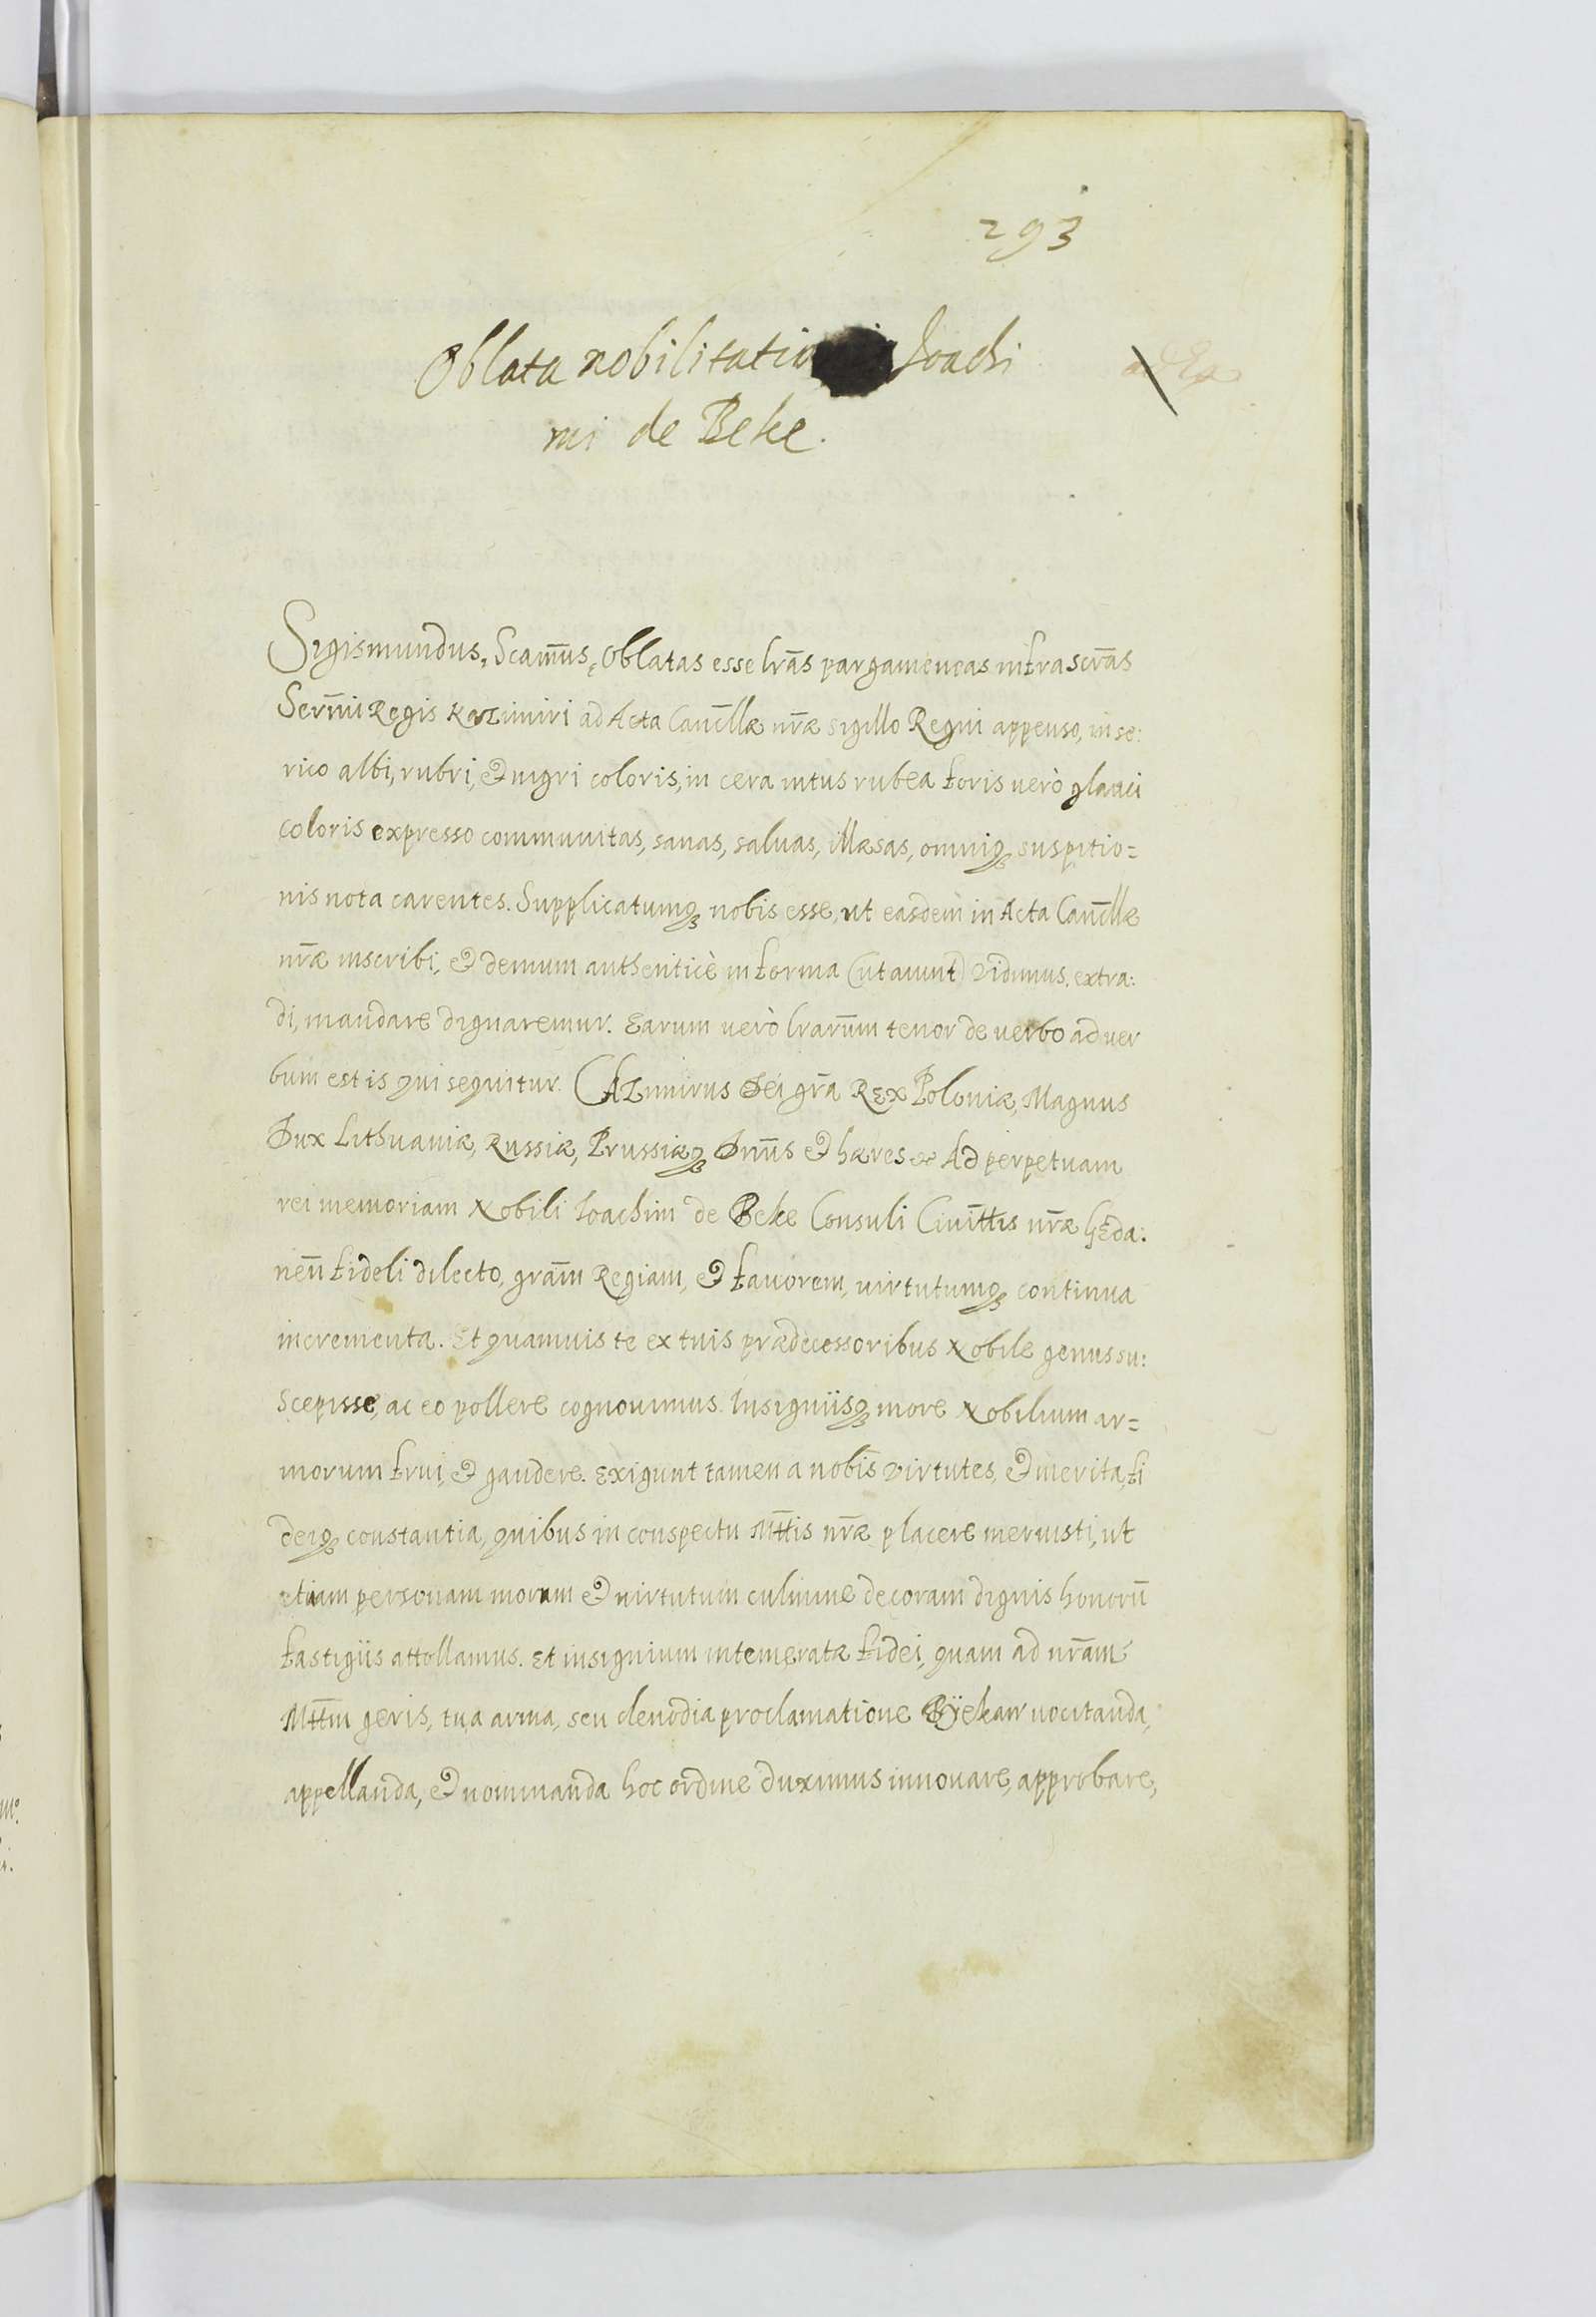 293
Oblata nobilitatio Joachi
mi de Beke.
Sigismundus, Scam̄us, Oblatas esse lr̄as pargameneas infrascr̄as
Serm̄i Regis Kazimiri ad Acta Canc̄llæ nr̄æ sigillo Regni appenso, in se:
rico albi, rubri, & nigri coloris, in cera intus rubea foris verò glauci
coloris expresso communitas, sanas, saluas, illæsas, omniq₃ suspitio=
nis nota carentes. Supplicatumq₃ nobis esse, ut easdem in Acta Canc̄llæ
nr̄æ inscribi, & demum authenticè in forma (ut aiunt) vidimus, extra:
di, mandare dignaremur. Earum verò lrarūm tenor de verbo ad ver
bum est is qui sequitur. CAzimirus Dei gr̄a Rex Poloniæ, Magnus
Dux Lithuaniæ, Russiæ, Prussiæq₃ Dnūs & hæres &c Ad perpetuam
rei memoriam Nobili Ioachim de Beke Consuli Ciuitt̄is nr̄æ Gēda:
nen̄ fideli dilecto, grām Regiam, & fauorem, virtutumq₃ continua
incrementa. Et quamuis te ex tuis prædecessoribus Nobile genus su:
scepisse, ac eo pollere cognouimus. Insigniisq₃ more Nobilium ar=
morum frui, & gaudere. Exigunt tamen a nobis virtutes, & merita, fi
deiq₃ constantia, quibus in conspectu Mtt̄is nr̄æ placere meruisti, ut
etiam personam morum & virtutum culmine decoram dignis honorū
fastigiis attollamus. Et insignium intemeratæ fidei, quam ad nr̄am
Mtt̄m geris, tua arma, seu clenodia proclamatione Byekaw uocitanda,
appellanda, & nominanda hoc ordine duximus innouare, approbare,